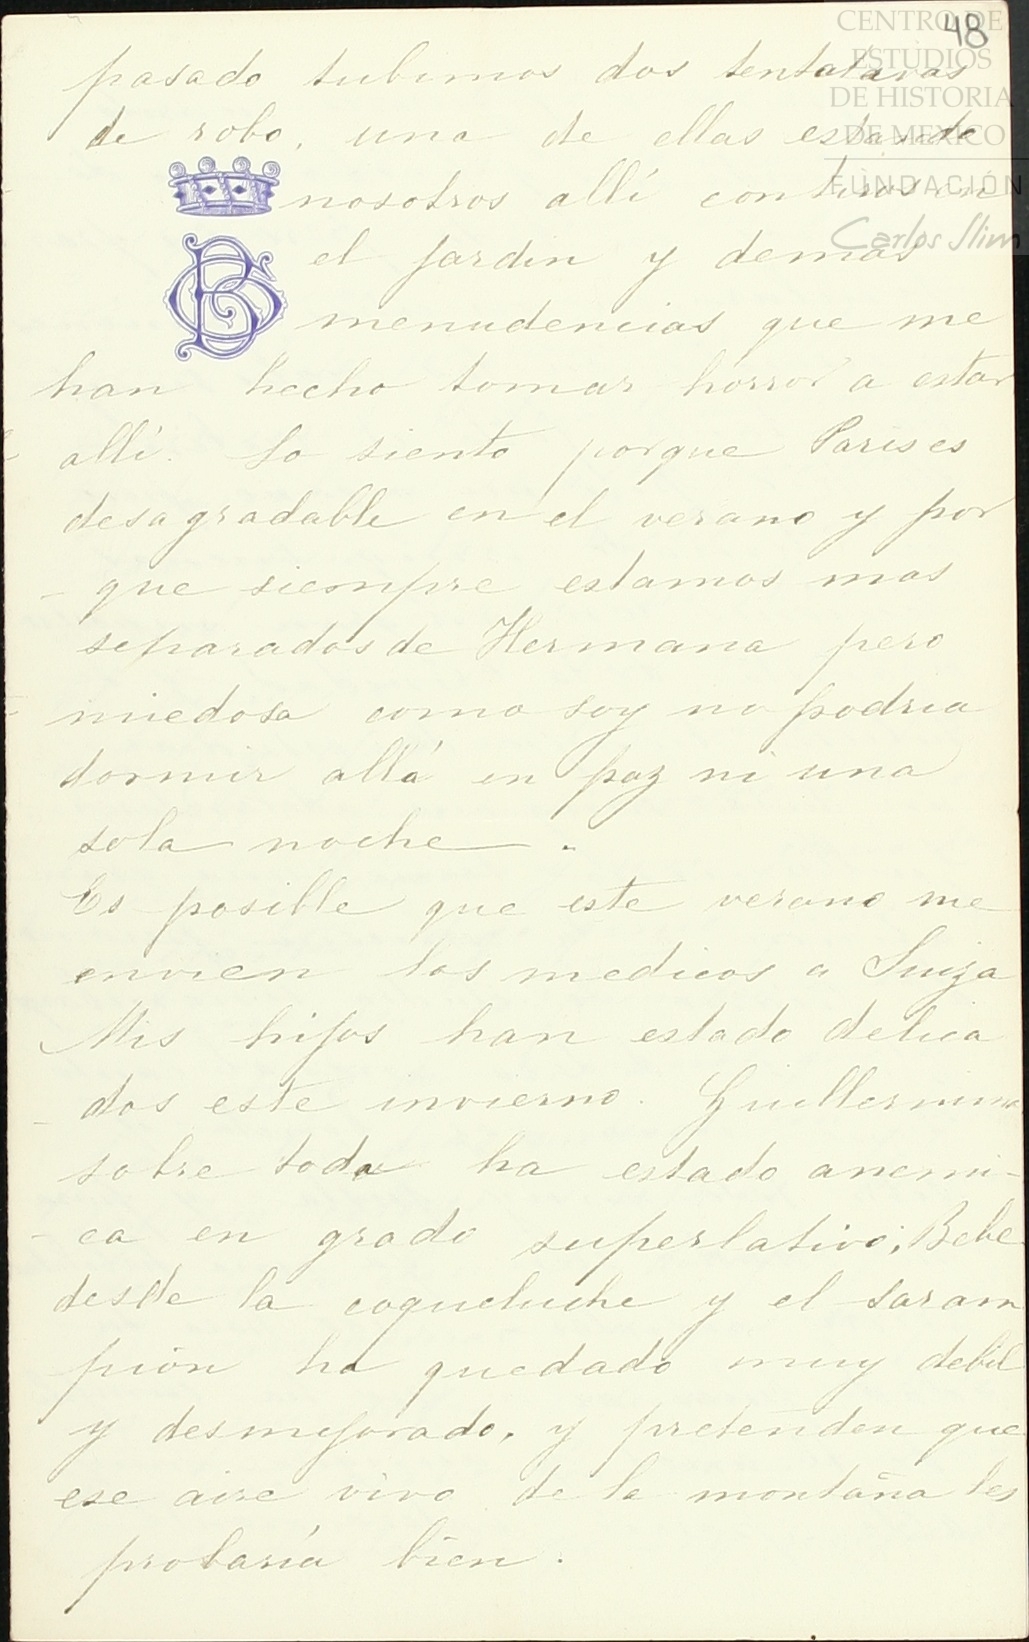 48
CENTRO DE
ESTUDIOS
DE HISTORIA
DE MEXICO
FUNDACIÓN
Carlos Slim
pasado tubimos dos tentativas
de robo, una de ellas estando
nosotros allí con tiros en
el jardin y demas
menudencias que me
han hecho tomar horror a estar
allí. Lo siento porque Paris es
desagradable en el verano y por
- que siempre estamos mas
separados de Hermana pero
miedosa como soy no podria
dormir allá en paz ni una
sola noche.
Es posible que este verano me
envien los medicos a Suiza
Mis hijos han estado delica
- dos este invierno. Guillermina
sobre todo ha estado anemi-
- ca en grado superlativo, Bebe
desde la coqueluche y el saram
pión ha quedado muy debil
y desmejorado, y pretenden que
ese aire vivo de la montaña les
probaría bien.